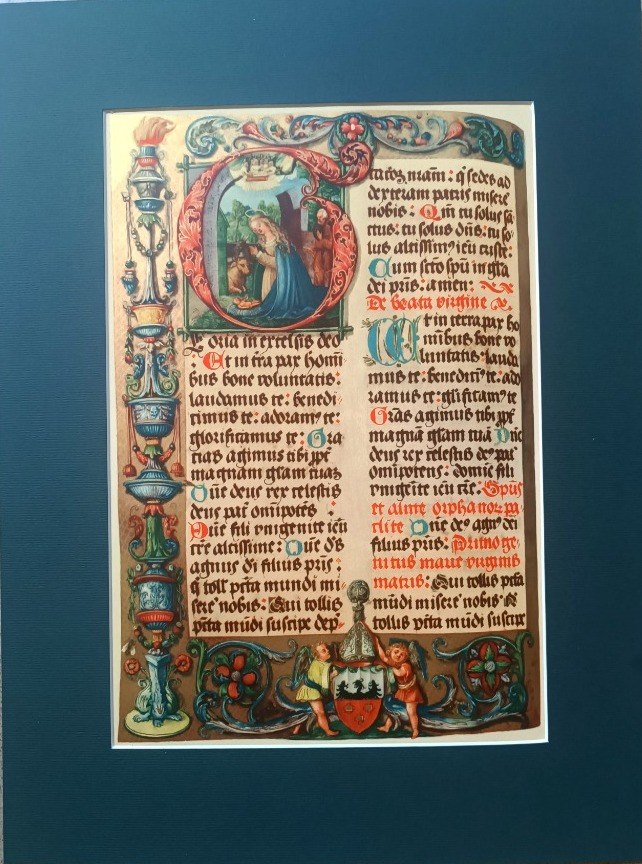 Gloria in excelsis deo
: Et in tr̃a pax homĩ
bus bone voluntatis:
laudamus te: benedi-
timus te: adoram⁹ te:
glorificamus te: Gra
cias agimus tibi ꝓpt̃
magnam glam tuaꝫ
Dñe deus rex celestis
deus pat̃ om̃ipotẽs
Dñe fili vnigenite iẽu
altissime: Dñe d̃s
agnus di filius pris̃:
q̃ toll̃ pctã mundi mi-
sere nobis: Qui tollis
pctã mũdi suscipe dep-
nr̃am: q̃ sedes ad
dexteram patris misere
nobis: Qm̃ tu solus sã
ctus: tu solus dñs: tu so-
lus altissim⁹ iẽu criste:
Cum scto spũ in glã
dei pris̃: amen:
De beata virgine
Et in terra pax ho
minibus bone vo
luntatis: lauda
mus te: benedicim⁹ te: ado
ramus te: glificam⁹ te
Gras agimus tibi ꝓpt̃
magnã glam tuã Dñe
deus rex celestis de⁹ pat̃
om̃ipotens: domie fili
vnigenite iẽu: Spũs
et alme orphanoꝝ pa-
clite Dñe de⁹ agn⁹ dei
filius pris̃: Primoge-
nitus marie virginis
matris: Qui tollis pctã
mũdi misere nobis Q̃
tollis pctã mũdi suscipe